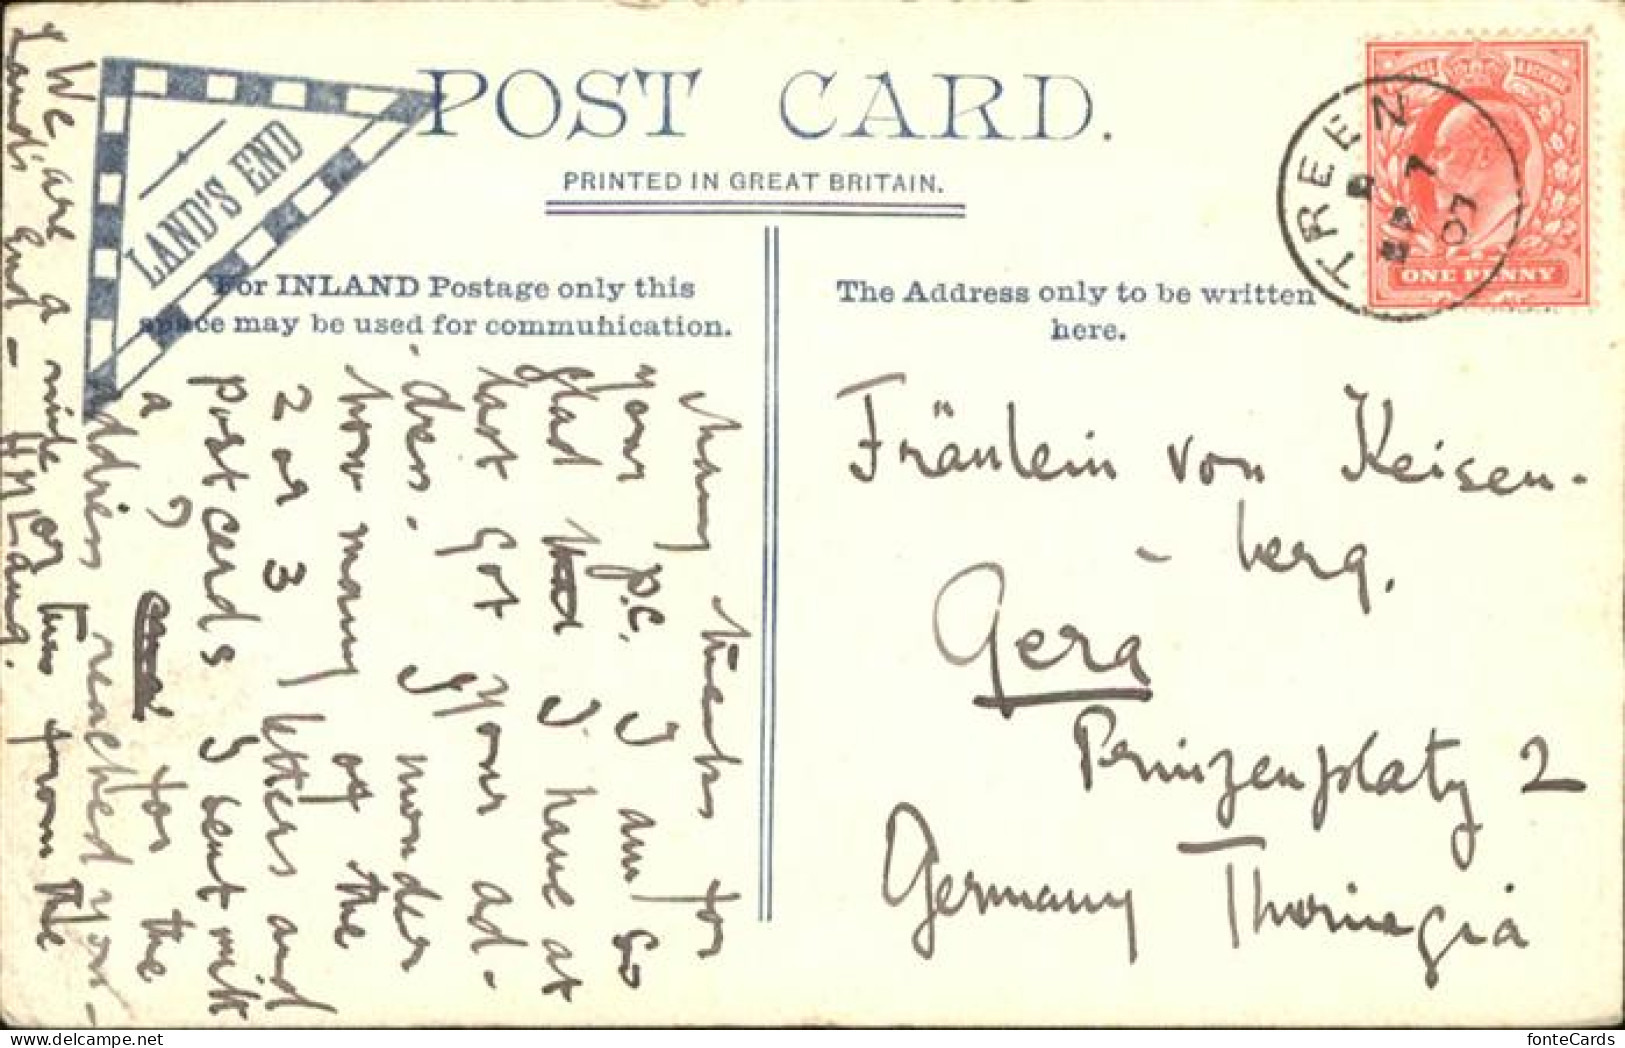 POST CARD.
PRINTED IN GREAT BRITAIN.
LAND'S END
For INLAND Postage only this
space may be used for communication.
The Address only to be written
here.
TREEN
SP 7
07
ONE PENNY
Many thanks for
your p.c. I am so
glad I have at
last got your ad-
dress. I wonder
how many of the
2 or 3 letters and
postcards I sent with
a ? for the
address reached you -
We are a mile or two from the
Land's End - H M Laing.
Fräulein von Keisen-
- berg.
Gera
Prinzenplatz 2
Germany Thoringia
fonteCards